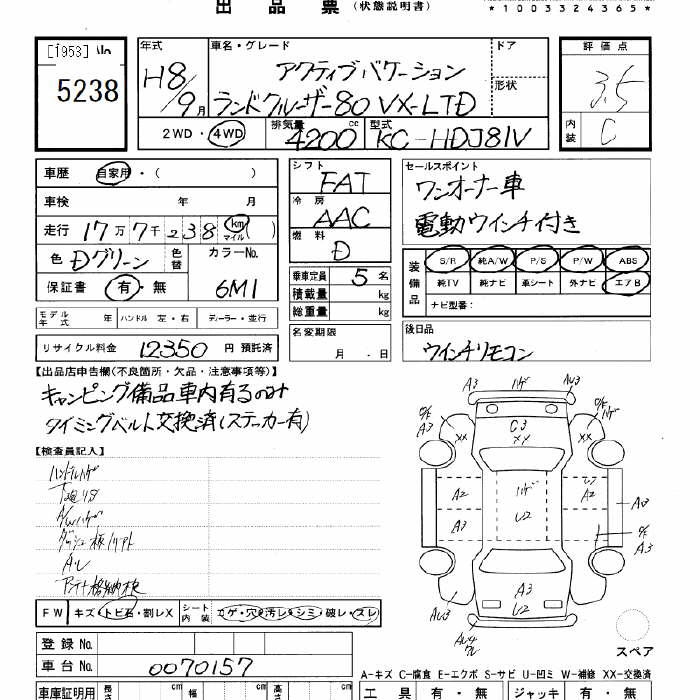 出品票 (状態説明書)
*1003324365*
[1953] No
5238
年式 H8/9月
車名・グレード アクティブバケーション
ランドクルーザー80 VX-LTD
ドア
形状
2WD・4WD
排気量 4200 cc 型式 KC-HDJ81V
評価点
3.5
内装 C
車歴 自家用・( )
車検 年 月
走行 17万7千238 km マイル( )
色 Dグリーン 色替 カラーNo. 6M1
保証書 有・無
モデル年式 年 ハンドル 左・右 ディーラー・並行
リサイクル料金 12350 円 預託済
シフト FAT
冷房 AAC
燃料 D
乗車定員 5 名
積載量 kg
総重量 kg
名変期限
月 - 日
セールスポイント
ワンオーナー車
電動ウインチ付き
装備品
S/R 純A/W P/S P/W ABS
純TV 純ナビ 革シート 外ナビ エアB
ナビ型番:
後日品
ウインチリモコン
【出品店申告欄(不良箇所・欠品・注意事項等)】
キャンピング備品車内有るのみ
タイミングベルト交換済(ステッカー有)
【検査員記入】
ハンドルハゲ
下廻りサ
A/Wハゲ
FW キズ・トビ石・割レX シート内装 コゲ・穴・汚レ・シミ・破レ・スレ
登録No.
車台No. 0070157
車庫証明用 長さ cm 幅 cm 高さ cm
A3
ハゲ
AU3
A3
XX
C3
XX
XX
ハゲ
A2
A3
ハゲ
A2
A3
A3
A3
AU3
スペア
A-キズ C-腐食 E-エクボ S-サビ U-凹ミ W-補修 XX-交換済
工具 有・無 ジャッキ 有・無